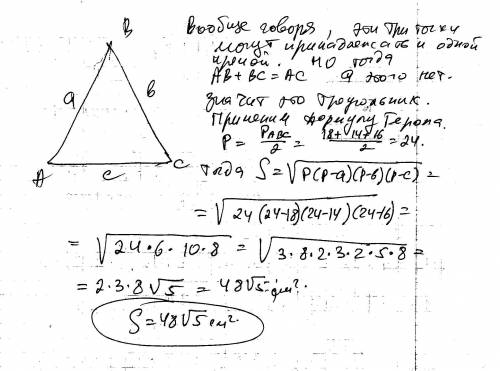 B
a
b
A
c
C
Вообще говоря, эти три точки
могут принадлежать и одной
прямой. Но тогда
AB + BC = AC а этого нет.
значит это треугольник.
Применим формулу Герона.
P = P_ABC/2 = (18+14+16)/2 = 24.
тогда S = √(P(P-a)(P-b)(P-c)) =
= √(24(24-18)(24-14)(24-16)) =
= √(24·6·10·8) = √(3·8·2·3·2·5·8) =
= 2·3·8√5 = 48√5 см².
S = 48√5 см².